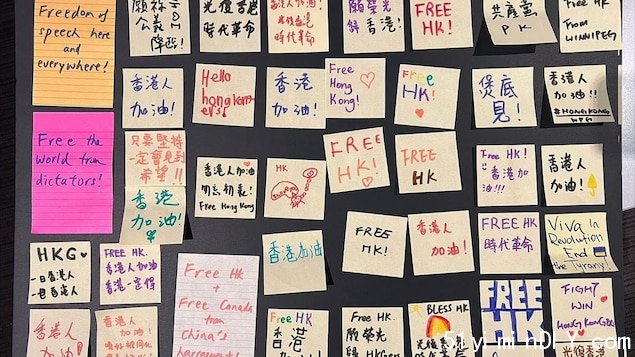 Freedom of
speech here
and
everywhere!
願
公義
降臨!
光復香港
時代革命
香港人加油!
光復香港
時代革命
願榮光
歸香港!
FREE
HK!
共產黨
PK
Free HK
From
WINNIPEG
香港人
加油!
Hello
hongkongers!
香港
加油!
Free
Hong
Kong!
Free
HK!
煲底
見!
香港人
加油!!
#HONGKONG
Free the
world from
dictators!
只要堅持
一定會見到
希望!!
香港人加油
勿忘初衷!
Free Hong Kong
HK
FREE
HK!
FREE
HK
Free HK!
香港加
油!!!
香港人
加油!
香港
加油!
HKG
一日香港人
一世香港人
FREE HK.
香港人加油
香港一定得
Free HK
+
Free Canada
from
China's
harrasment!
香港加油
FREE
HK!
香港人
加油!
FREE HK
時代革命
Viva In
Revolution
End
the Tyranny!
香港人
加油!
香港人
加油!
Free HK
香港
Free HK.
願榮光
歸 HKGers
BLESS HK
FREE
FIGHT
WIN
HONG KONG
光復香港
51y-minDIY.com